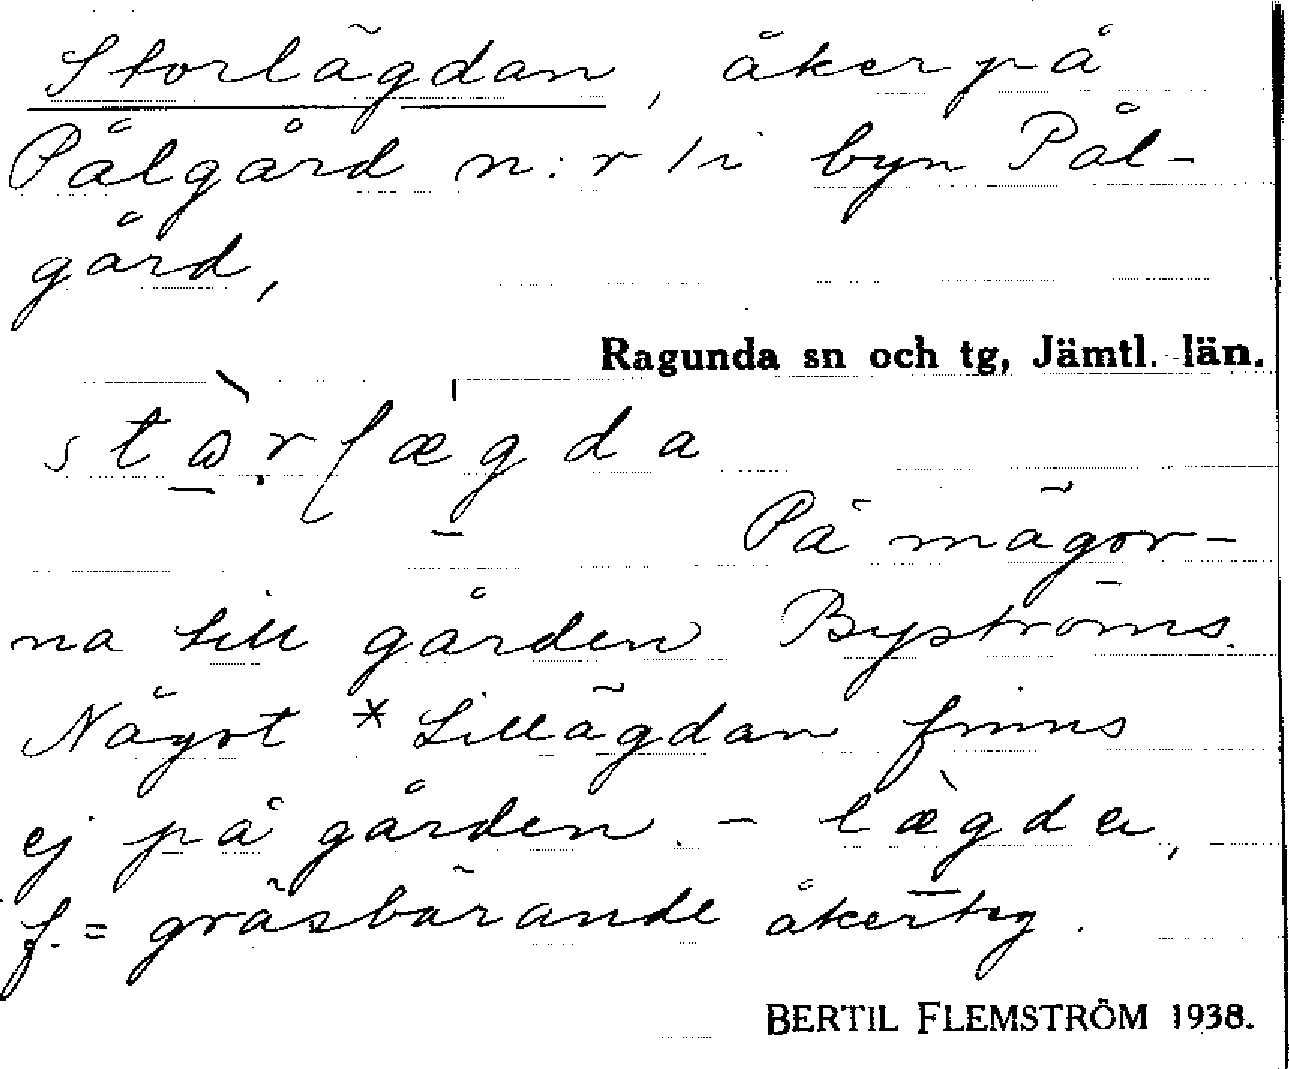 Storlägdan, åker på
Pålgård n:r 1 i byn Pål-
gård,
Ragunda sn och tg, Jämtl. län.
På mägor-
na till gården Byströms.
Något *Lillägdan finns
ej på gården. - læ̀gda,
f. = gräsbärande åkerteg.
BERTIL FLEMSTRÖM 1938.